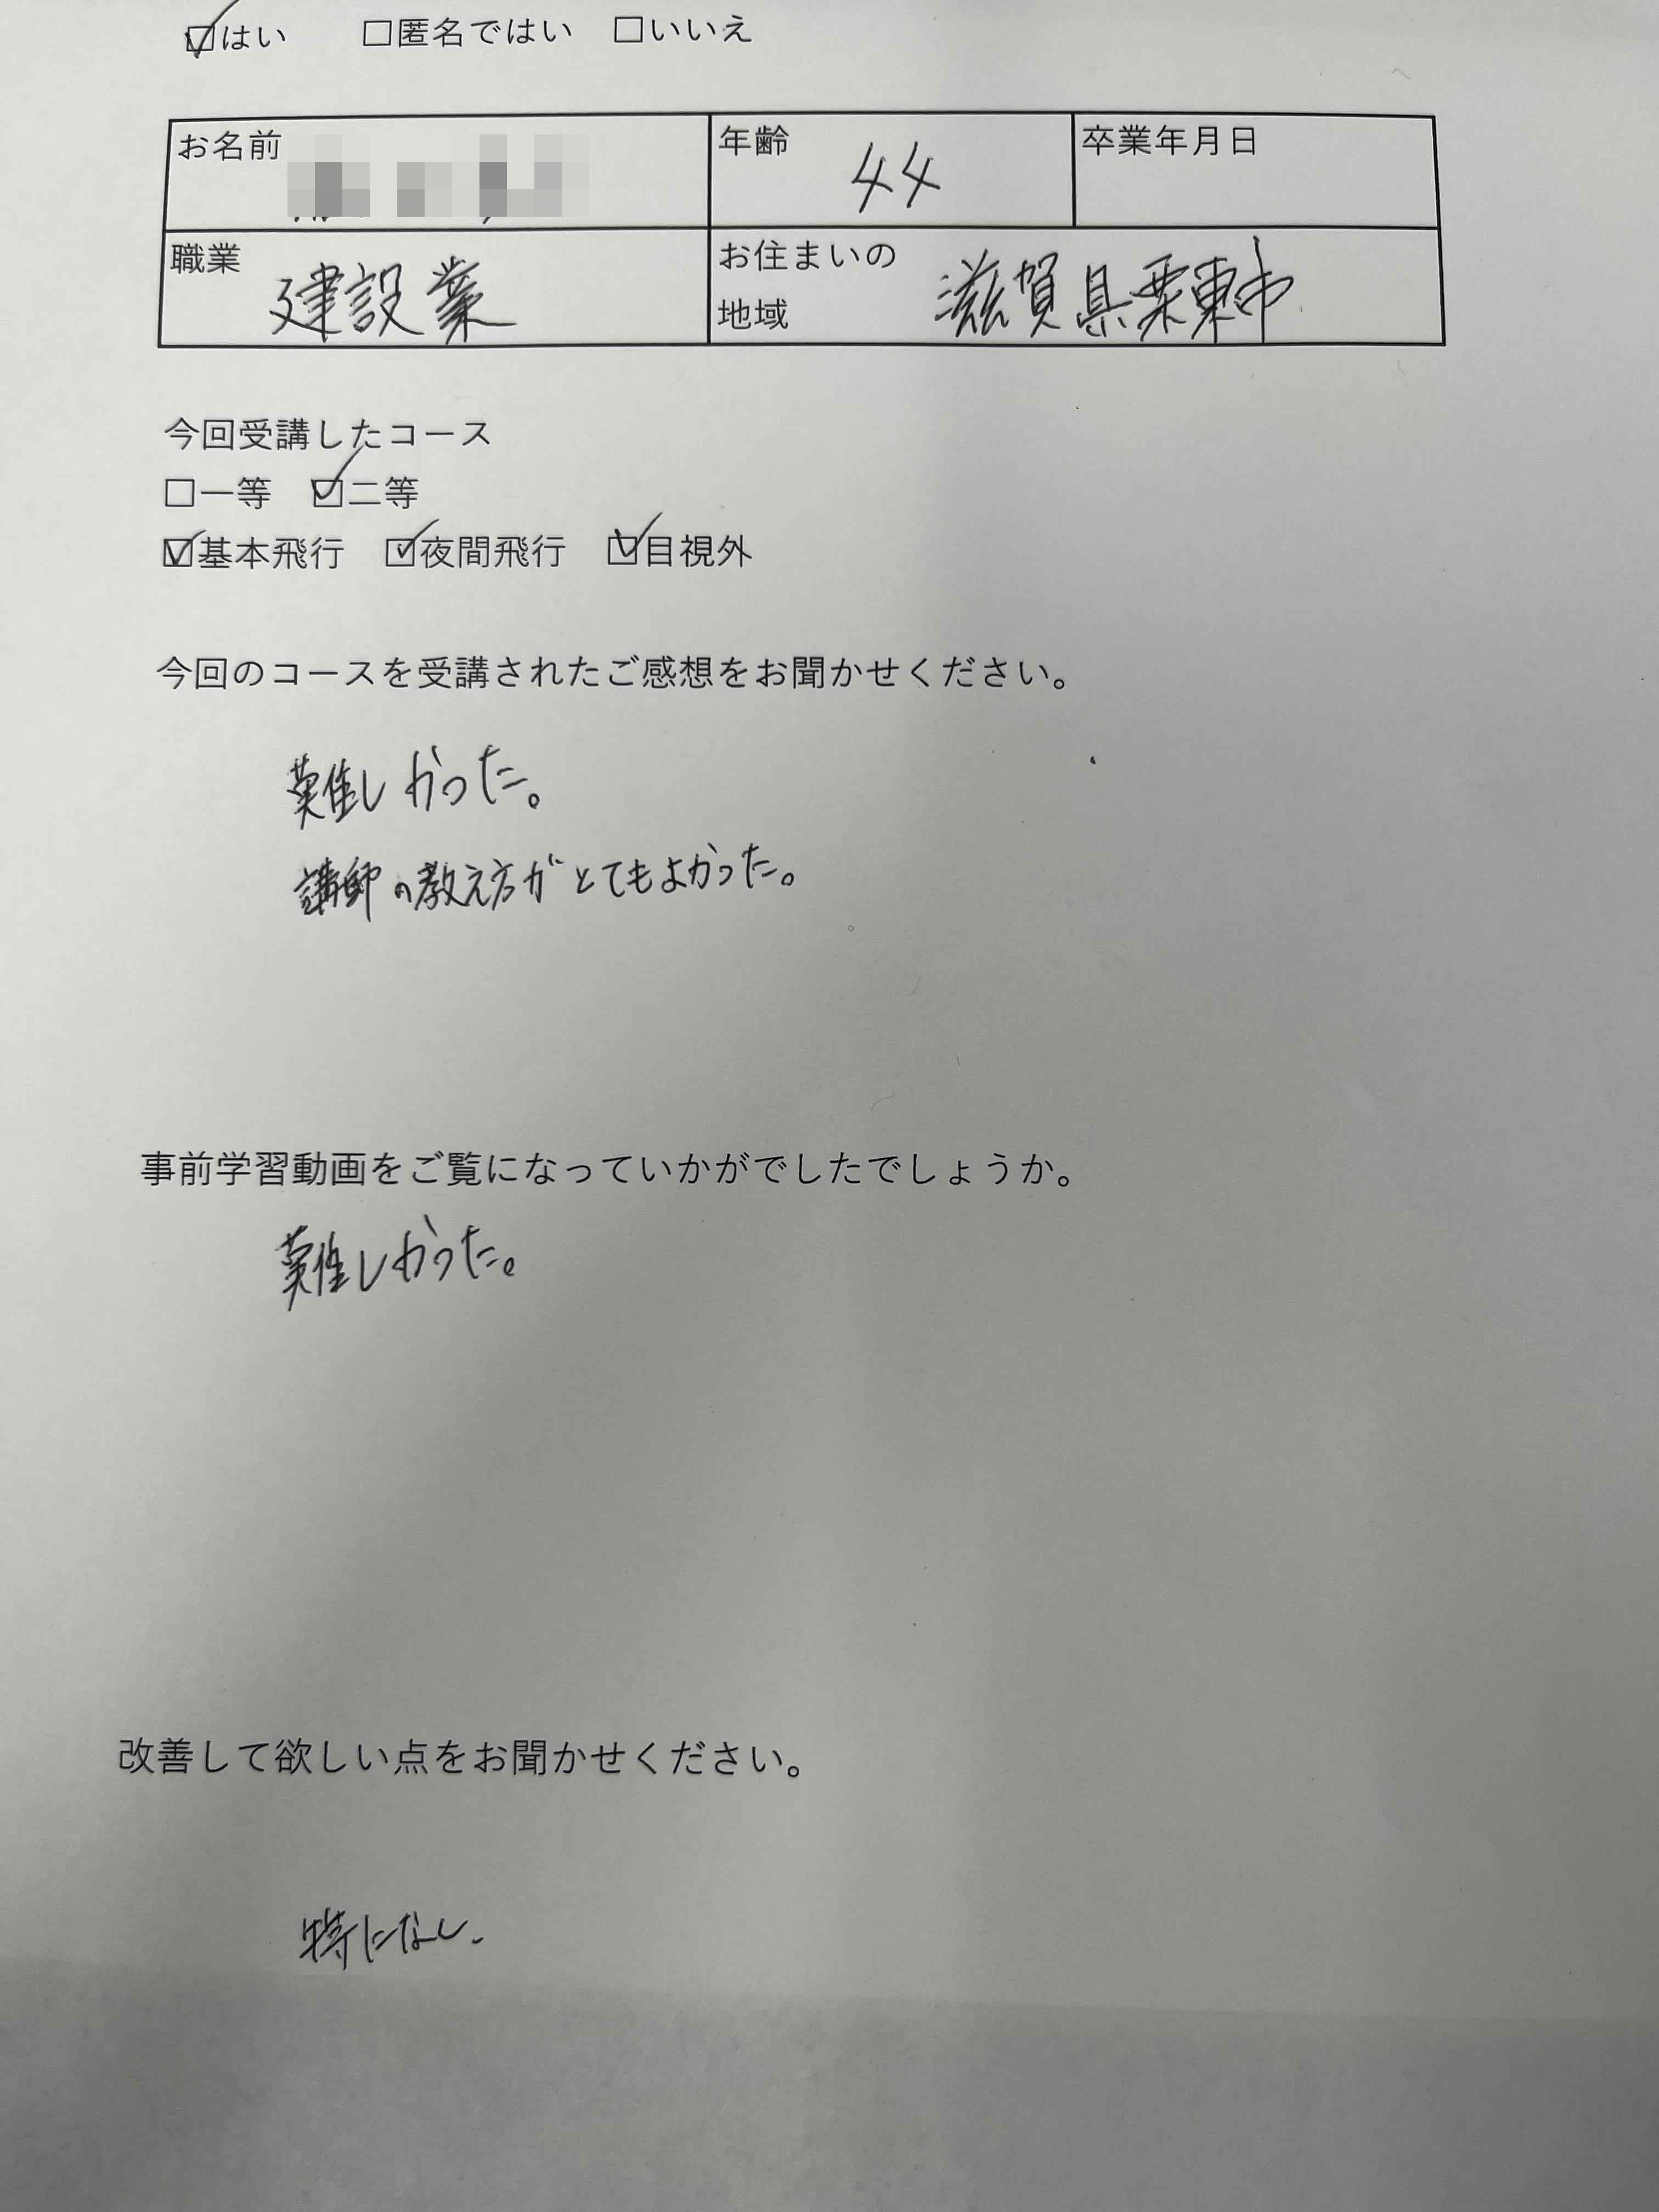 ☑はい ☐匿名ではい ☐いいえ
お名前
年齢 44
卒業年月日
職業 建設業
お住まいの
地域 滋賀県栗東市
今回受講したコース
☐一等 ☑二等
☑基本飛行 ☑夜間飛行 ☑目視外
今回のコースを受講されたご感想をお聞かせください。
難しかった。
講師の教え方がとてもよかった。
事前学習動画をご覧になっていかがでしたでしょうか。
難しかった。
改善して欲しい点をお聞かせください。
特になし.